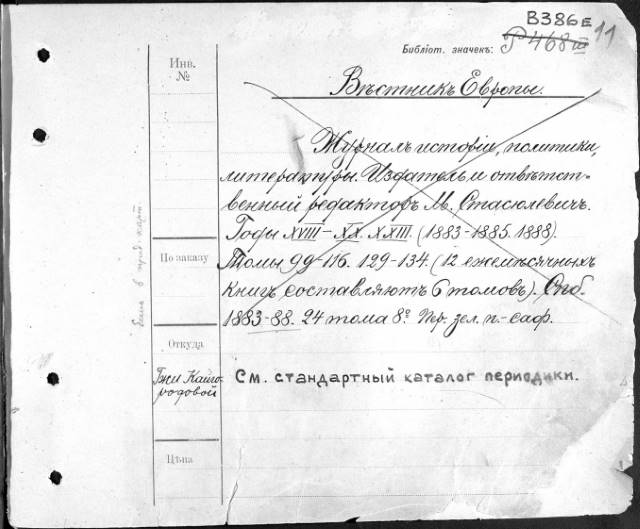 В386е/11
Библіот. значекъ: Р 468 III
Инв.
№
Вѣстникъ Европы.
Журналъ исторіи, политики,
литературы. Издатель и отвѣтст-
венный редакторъ М. Стасюлевичъ.
Годы XVIII–XX. XXIII. (1883-1885. 1888).
По заказу
Томы 99-116. 129-134. (12 ежемѣсячныхъ
книгъ составляютъ 6 томовъ). Спб.
1883-88. 24 тома 8º. Пр. зел. п.-саф.
Откуда
См. стандартный каталог периодики.
Цѣна